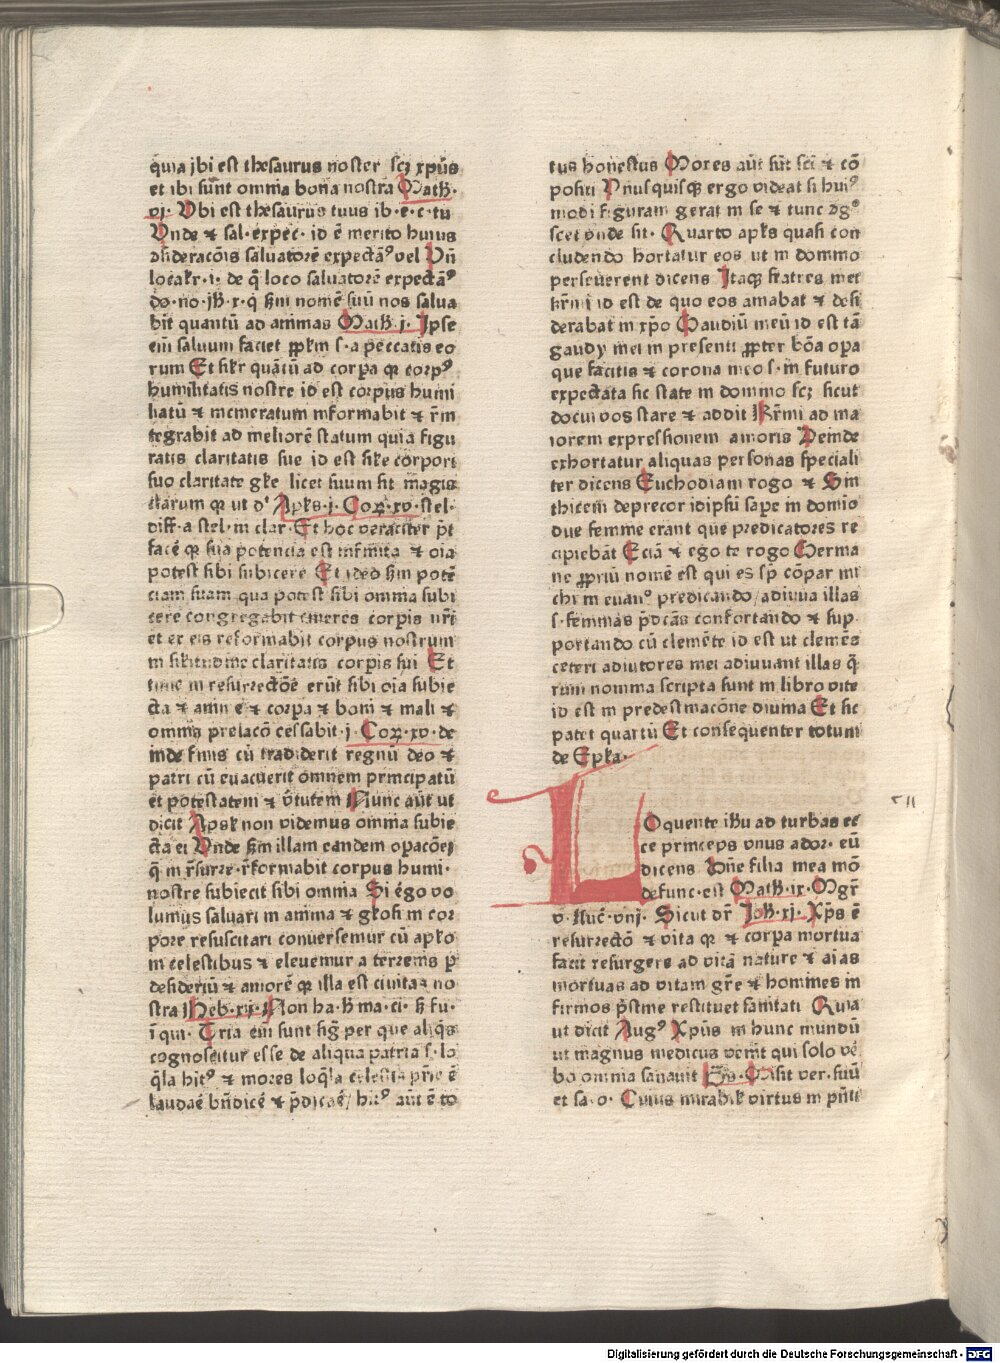 quia ibi est thesaurus noster scꝫ xp̄us
et ibi sunt omnia bona nostra Math·
vj· Vbi est thesaurus tuus ib·e·c·tu
Vnde ⁊ sal·expec· id ē merito huius
ꝯsideracōis saluatorē expectāꝰ vel Vñ
loc̄akr·i· de q̄ loco saluatorē expectāꝰ
dō·no·jħ·x·q̇ ẜm nomē suū nos salua
bit quantū ad animas Math· j· Ipse
eīn saluum faciet pplm s·a peccatis eo
rum Et silr quātū ad corpꝫa qꝛ corpꝰ
humilitatis nostre id est corpus humi
liatū ⁊ incineratum informabit ⁊ r̄in
tegrabit ad meliorē statum quia figu
ratis claritatis sue id est sile corpori
suo claritate gl̄e licet suum sit magis
clarum qꝛ ut dˢ Apls·j·Coꝝ·xv·stel·
diff·a stel·in clar· Et hoc veraciter p̄t
facē qꝛ sua potencia est infinita ⁊ oīa
potest sibi subicere Et ideo ẜm potē
ciam suam qua potest sibi omnia subi
cere congregabit cineres corpis nr̄i
et ex eis reformabit corpus nostrum
in silitudine claritatis corpis sui Et
tunc in resurrectōe erūt sibi oīa subie
cta ⁊ aniīe ⁊ corpa ⁊ boni ⁊ mali ⁊
omnis prelacō cessabit·j·Coꝝ·xv·de
inde finis cū tradiderit regnū deo ⁊
patri cū euacuerit omnem principatū
et potestatem ⁊ v̄tutem Nunc aūt ut
dicit Apsl non videmus omnia subie
cta ei Vnde ẜm illam eandem opacōeꝫ
q̄ in r̄surre·r̄formabit corpus humi·
nostre subiecit sibi omnia Si ḡo vo
lumus saluari in anima ⁊ gl̄osi in cor
pore resuscitari conuersemur cū aplo
in celestibus ⁊ eleuemur a terrenis p̄
desideriū ⁊ amorē qꝛ illa est ciuitas no
stra Heb·xij·Non ha·ħ ma·ci·ẜ fu·
ī qui· Tria eīn sunt sig̃ per que aliq̄s
cognoscitur esse de aliqua patria s·lo
q̄la hitꝰ ⁊ mores loq̄la celestis pr̄ie ē
laudaē bn̄dicē ⁊ p̄dicaē/ hitꝰ aūt ē to
tus honestus Mores aūt sūt scī ⁊ cō
positi Vnusquisqꝫ ergo videat si huiꝰ
modi figuram gerat in se ⁊ tunc ꝯgꝰ
scet vnde sit· Quarto apls quasi con
cludendo hortatur eos ut in domino
perseuerent dicens Itaqꝫ fratres mei
kr̄mi id est de quo eos amabat ⁊ desi
derabat in xp̄o Gaudiū meū id est tā
gaudy mei in presenti ꝓpter bōa opa
que facitis ⁊ corona mea s·in futuro
expectata sic state in domino scꝫ sicut
docui vos stare ⁊ addit Kr̄mi ad ma
iorem expressionem amoris Deinde
exhortatur aliquas personas speciali
ter dicens Euchodiam rogo ⁊ Sin
thicem deprecor idipsū sape in domīo
due femine erant que predicatores re
cipiebāt Eciā ⁊ ego te rogo Germa
ne ꝓpriū nomē est qui es sp̄ cōpar mi
chi in euanꝰ predicando/adiuua illas
s·feminas p̄dcās confortando ⁊ sup·
portando cū clemēte id est ut clemēs
ceteri adiutores mei adiuuant illas q̄
rum nomina scripta sunt in libro vite
id est in predestinacōne diuina Et sic
patet quartū Et consequenter totum
de Epla·
LOquente ihū ad turbas ec
ce princeps vnus ador· eū
dicens Dn̄e filia mea mō
defunc·est Math·ix·Mgr̄
v·Luc̄·viij· Sicut dr̄ Joħ·xj· Xp̄s ē
resurrectō ⁊ vita qꝛ ⁊ corpa mortua
facit resurgere ad vitā nature ⁊ aīas
mortuas ad vitam gr̄e ⁊ homines in
firmos p̄stine restituet sanitati Quia
ut dicit Augꝰ Xp̄us in hunc mundū
ut magnus medicus venit qui solo vē
bo omnia sanauit Ps· Misit ver·suū
et sa·o· Cuius mirabil̄ virtus in p̄nti
Digitalisierung gefördert durch die Deutsche Forschungsgemeinschaft - DFG